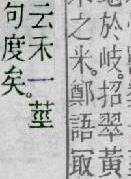 於岐。招翠黃
之米。鄭語冣
云禾一莖
句度矣。